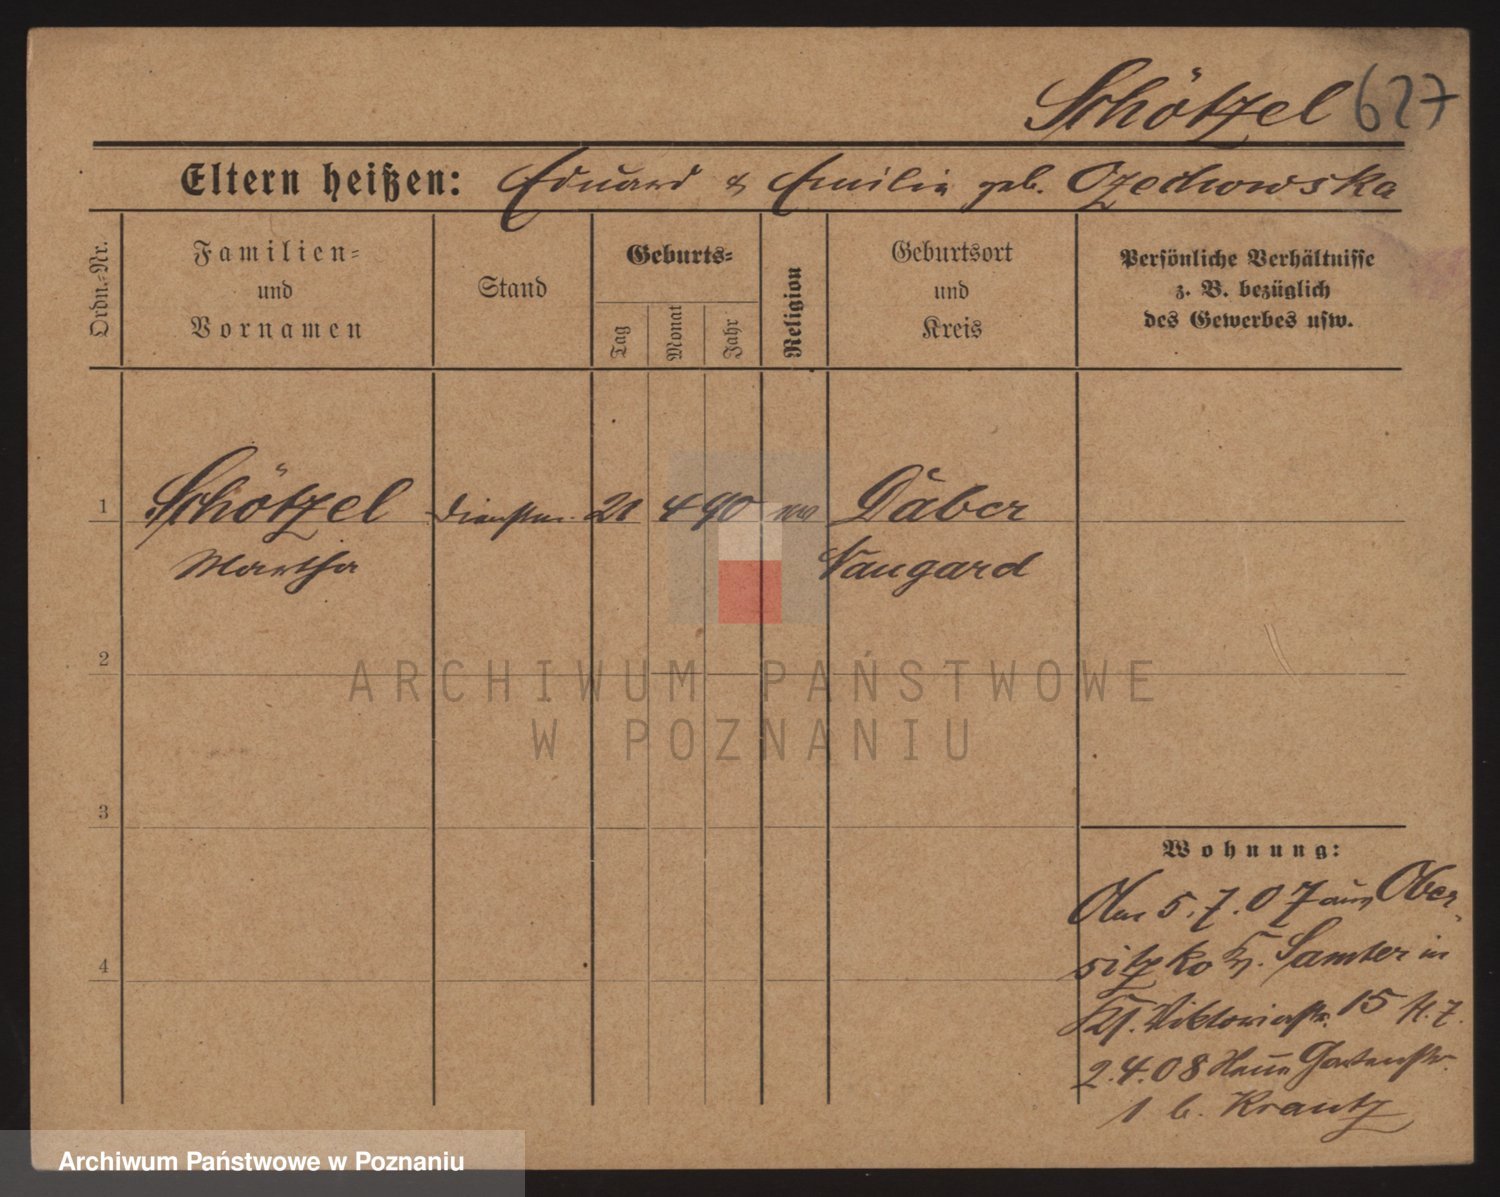 Schötzel 627
Eltern heißen: Eduard & Emilie geb. Czechowska
Ordn.-Nr.
Familien-
und
Vornamen
Stand
Geburts-
Tag
Monat
Jahr
Religion
Geburtsort
und
Kreis
Persönliche Verhältnisse
z. B. bezüglich
des Gewerbes usw.
1 Schötzel 21 4 90 Däber
Martha Naugard
2
3
4
Wohnung:
Am 5.7.07 aus Ober-
sitzko Kr. Samter in
Viktoriastr. 15 H. 7.
2.4.08 Neue Gartenstr.
1 b. Krantz
ARCHIWUM PAŃSTWOWE
W POZNANIU
Archiwum Państwowe w Poznaniu